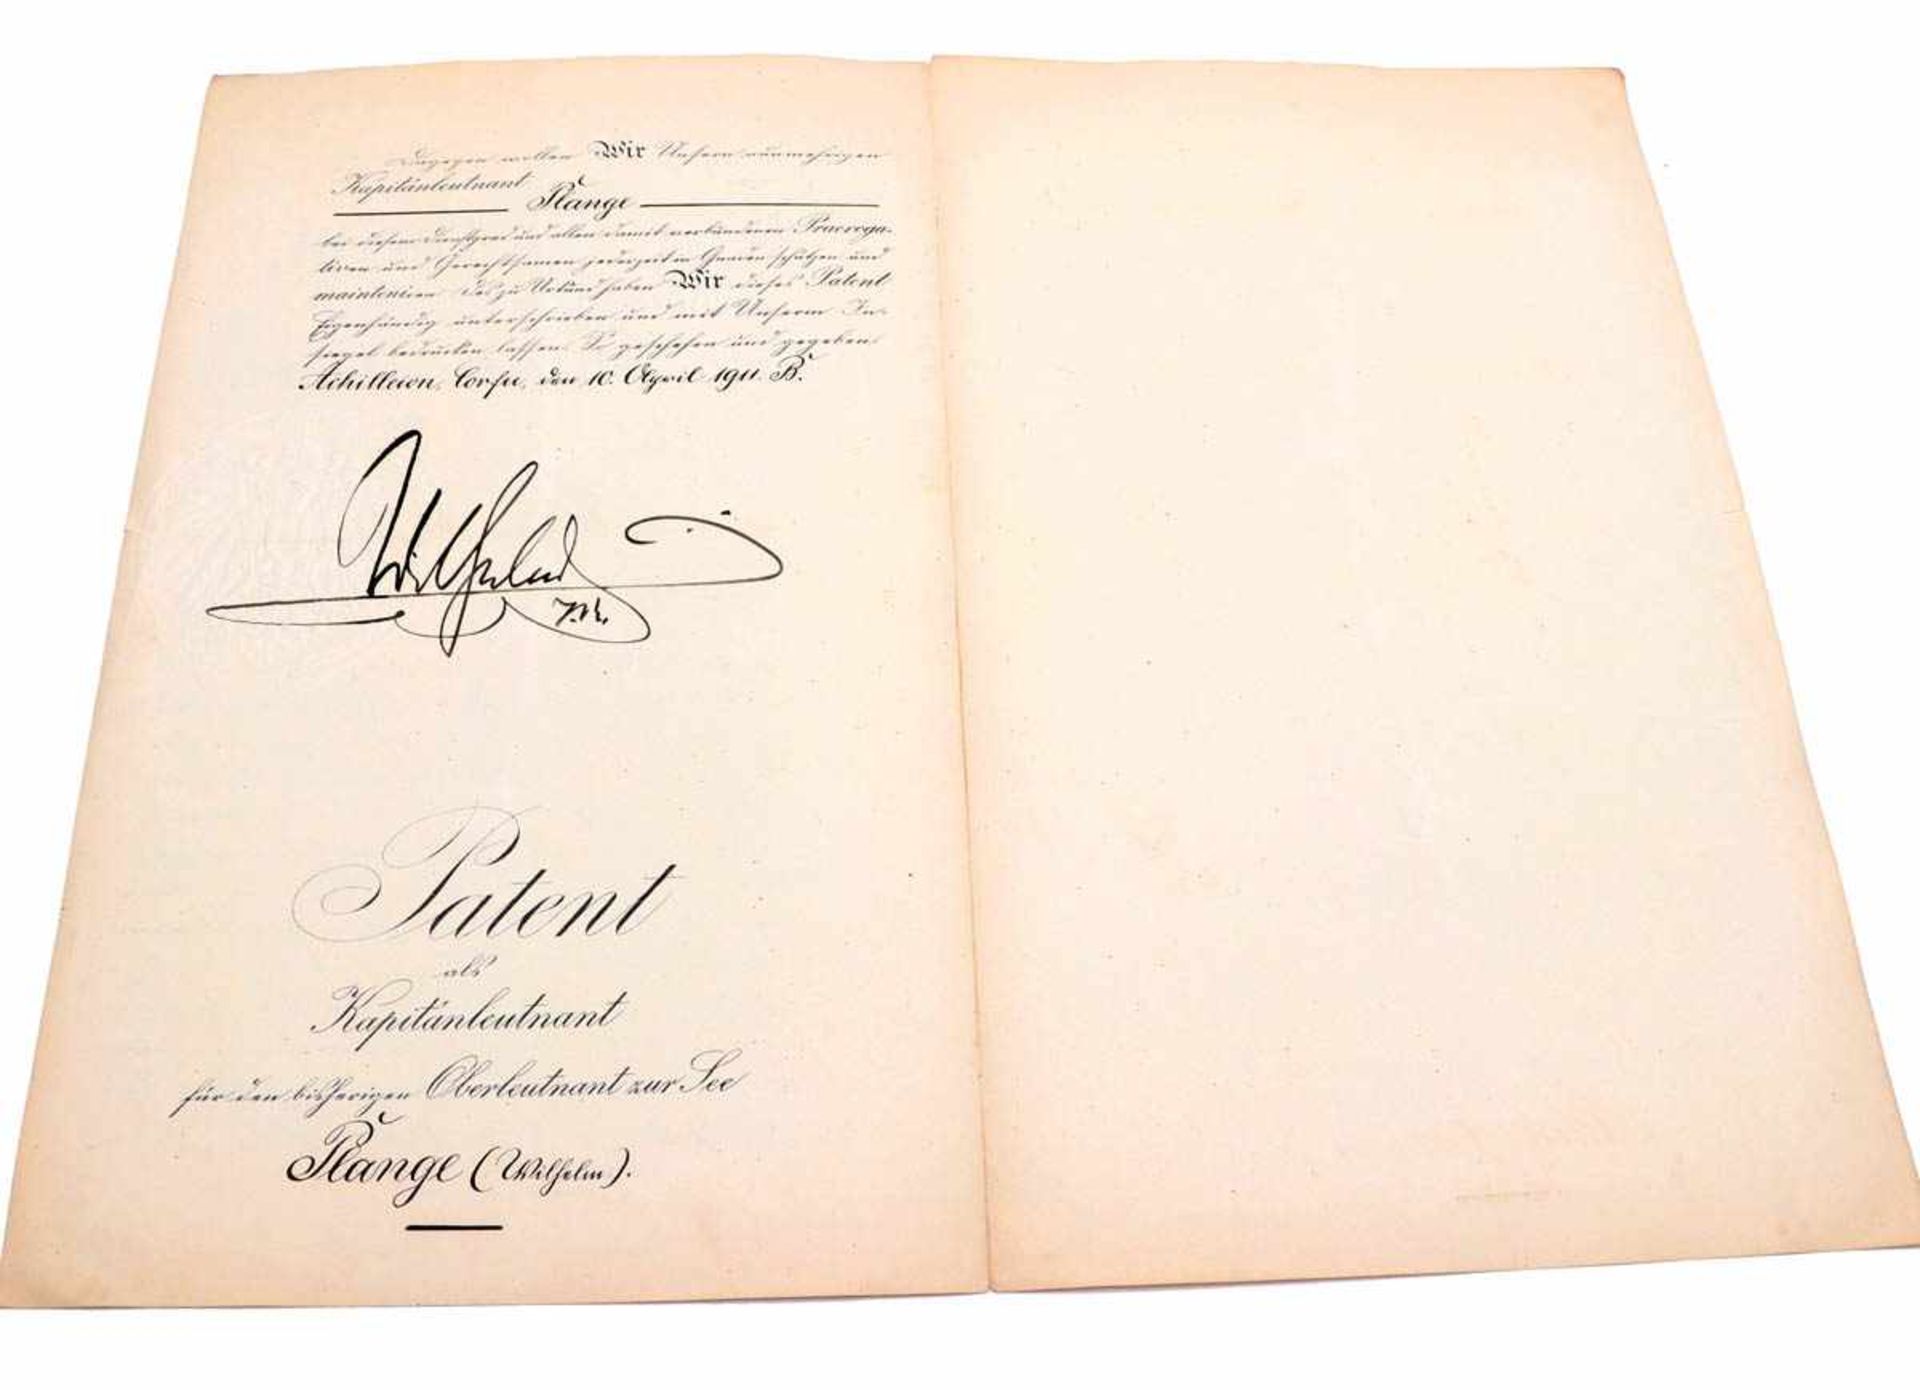 Dagegen wollen Wir Unsern nunmehrigen
Kapitänleutnant
Plange
bei diesem Dienstgrad und allen damit verbundenen Praeroga-
tiven und Gerechtsamen jederzeit in Gnaden schützen und
mainteniren. Des zu Urkund haben Wir dieses Patent
Eigenhändig unterschrieben und mit Unserm In-
siegel bedrucken lassen. So geschehen und gegeben
Achilleion, Corfu, den 10. April 1911. B.
Wilhelm
I.R.
Patent
als
Kapitänleutnant
für den bisherigen Oberleutnant zur See
Plange (Wilhelm).